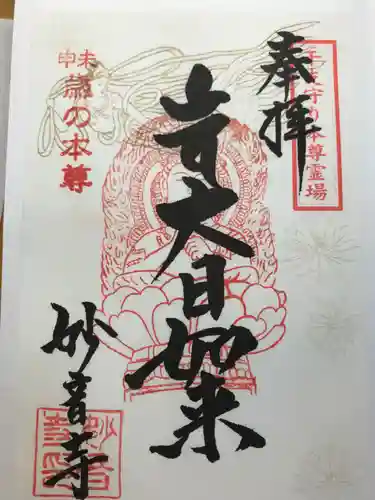 奉拝
守り本尊霊場
大日如来
未申
歳の本尊
妙音寺